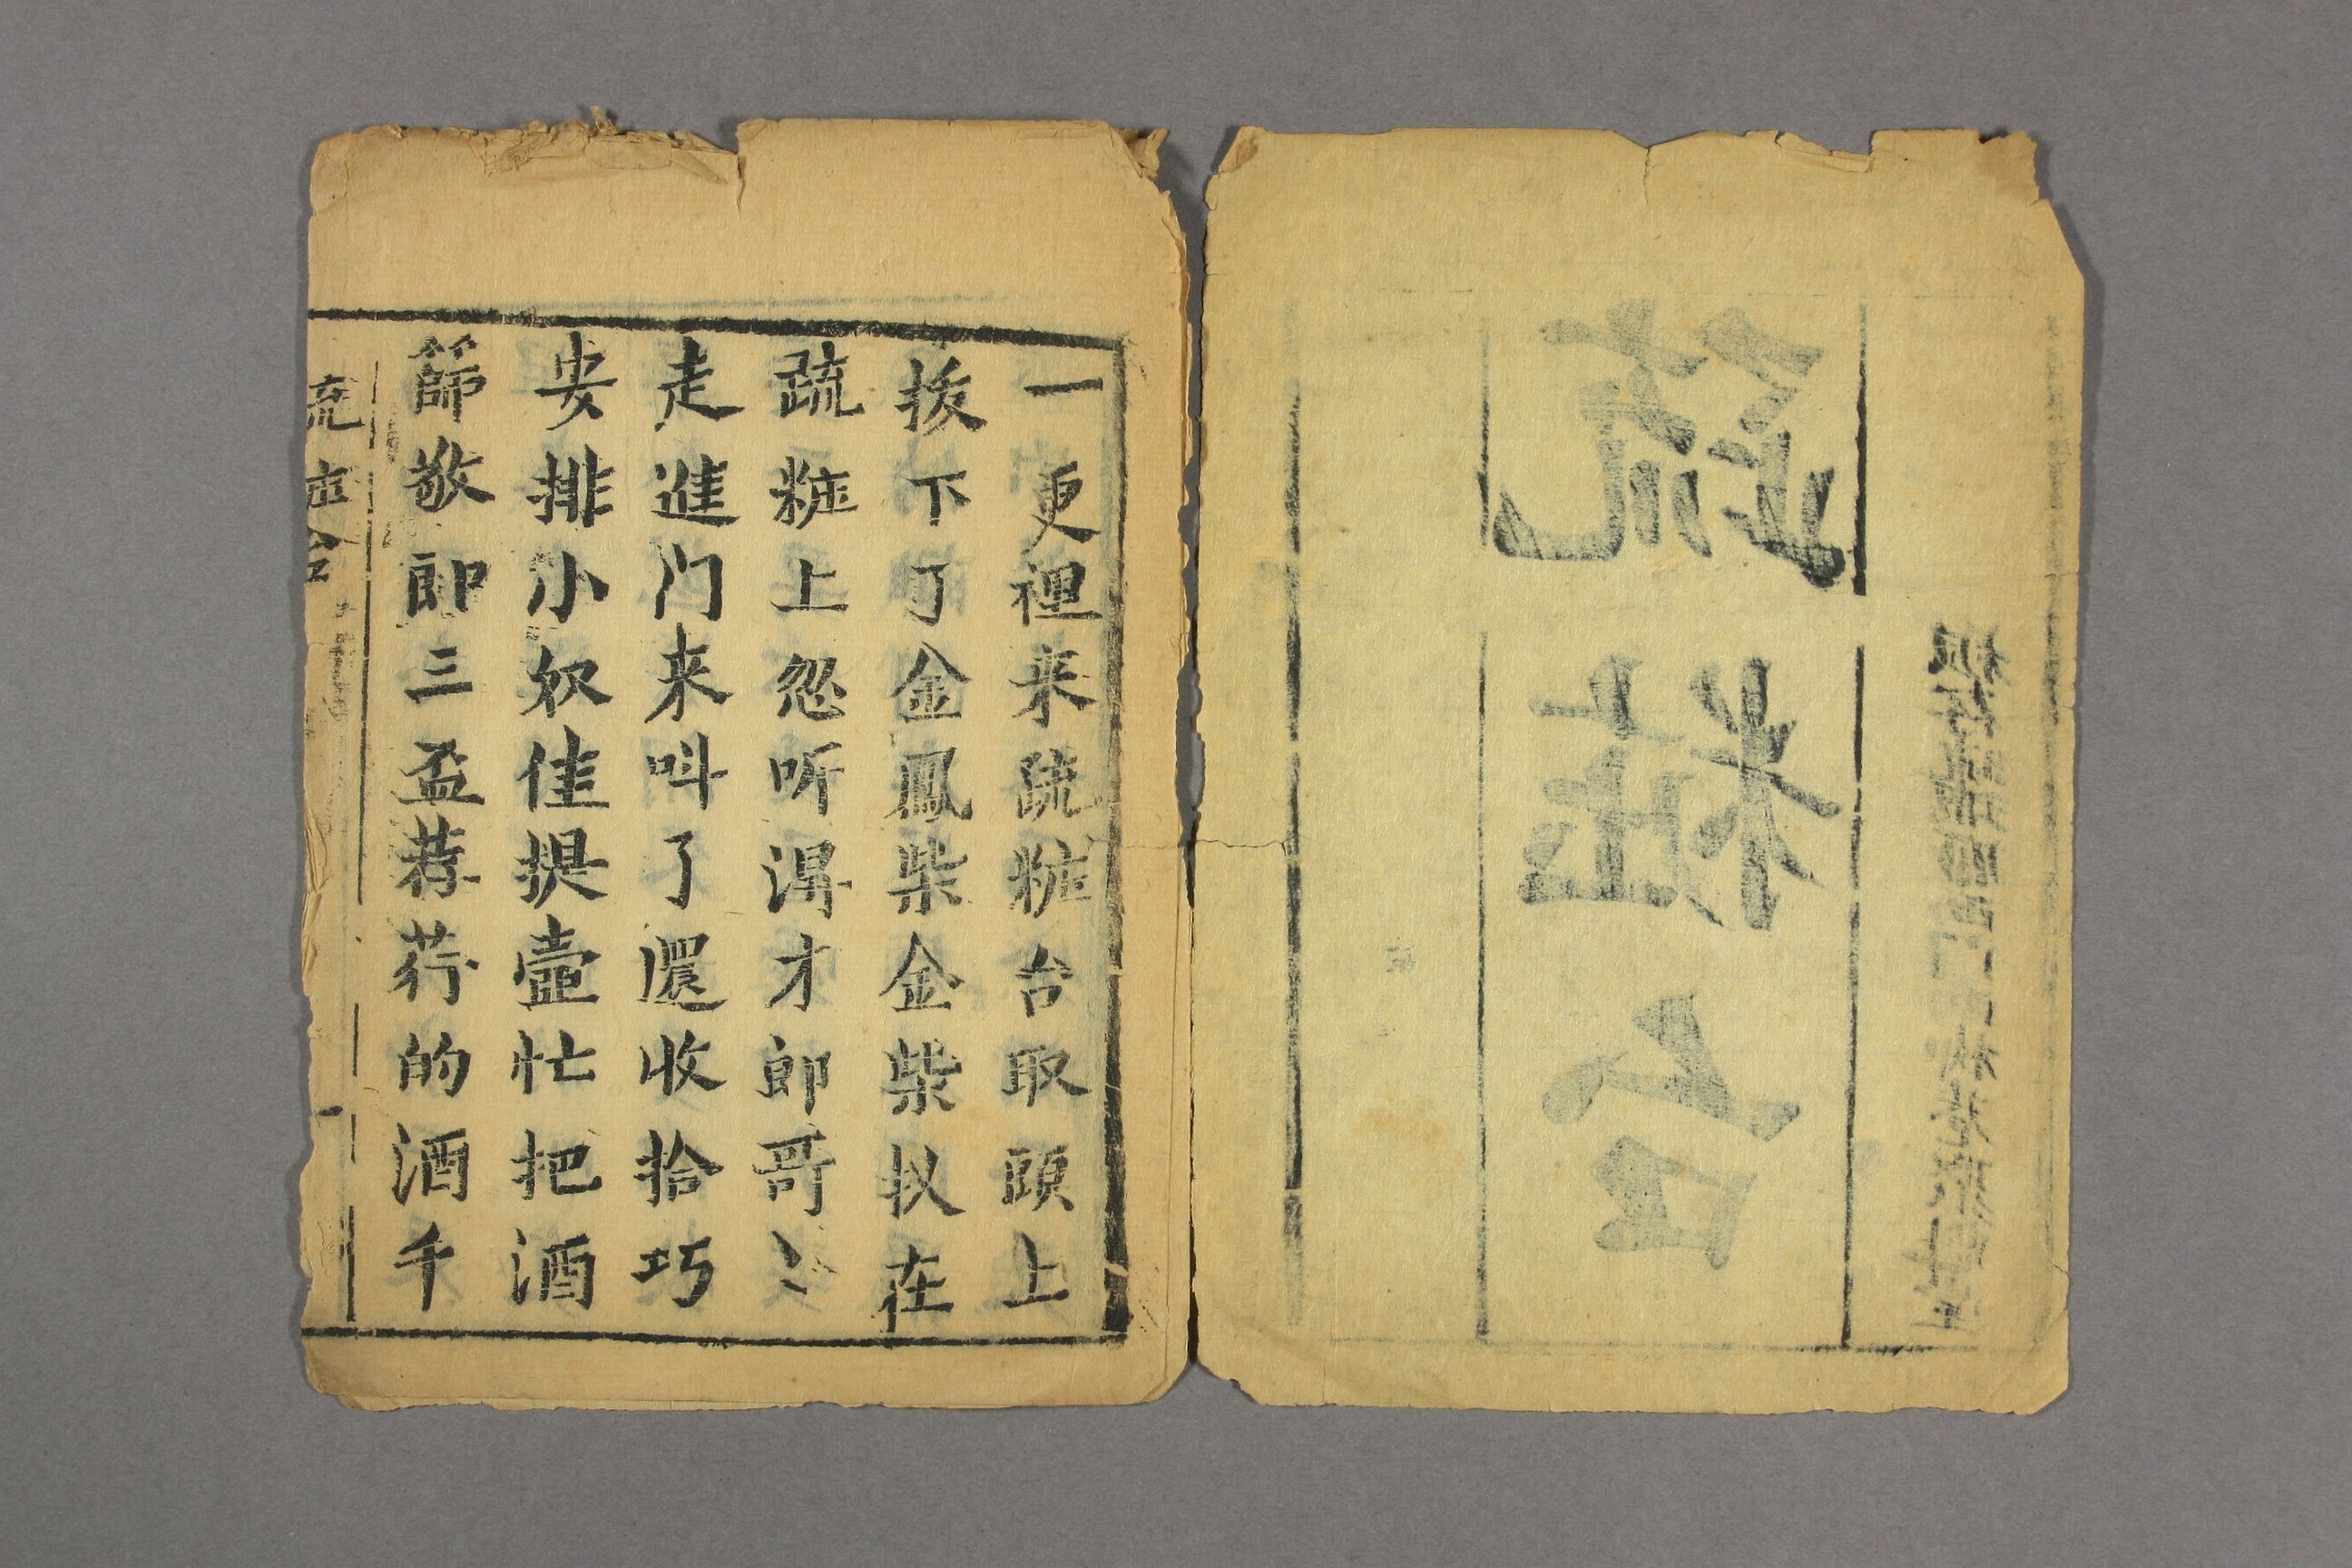 疏粧台
一更裡来疏粧台取頭上
拔下了金鳳柴金柴权在
疏粧上忽听淂才郎哥〻
走進门来呌了還收拾巧
安排小奴佳提壶忙把酒
篩敬郎三盃荐荇的酒千
疏粧台 一